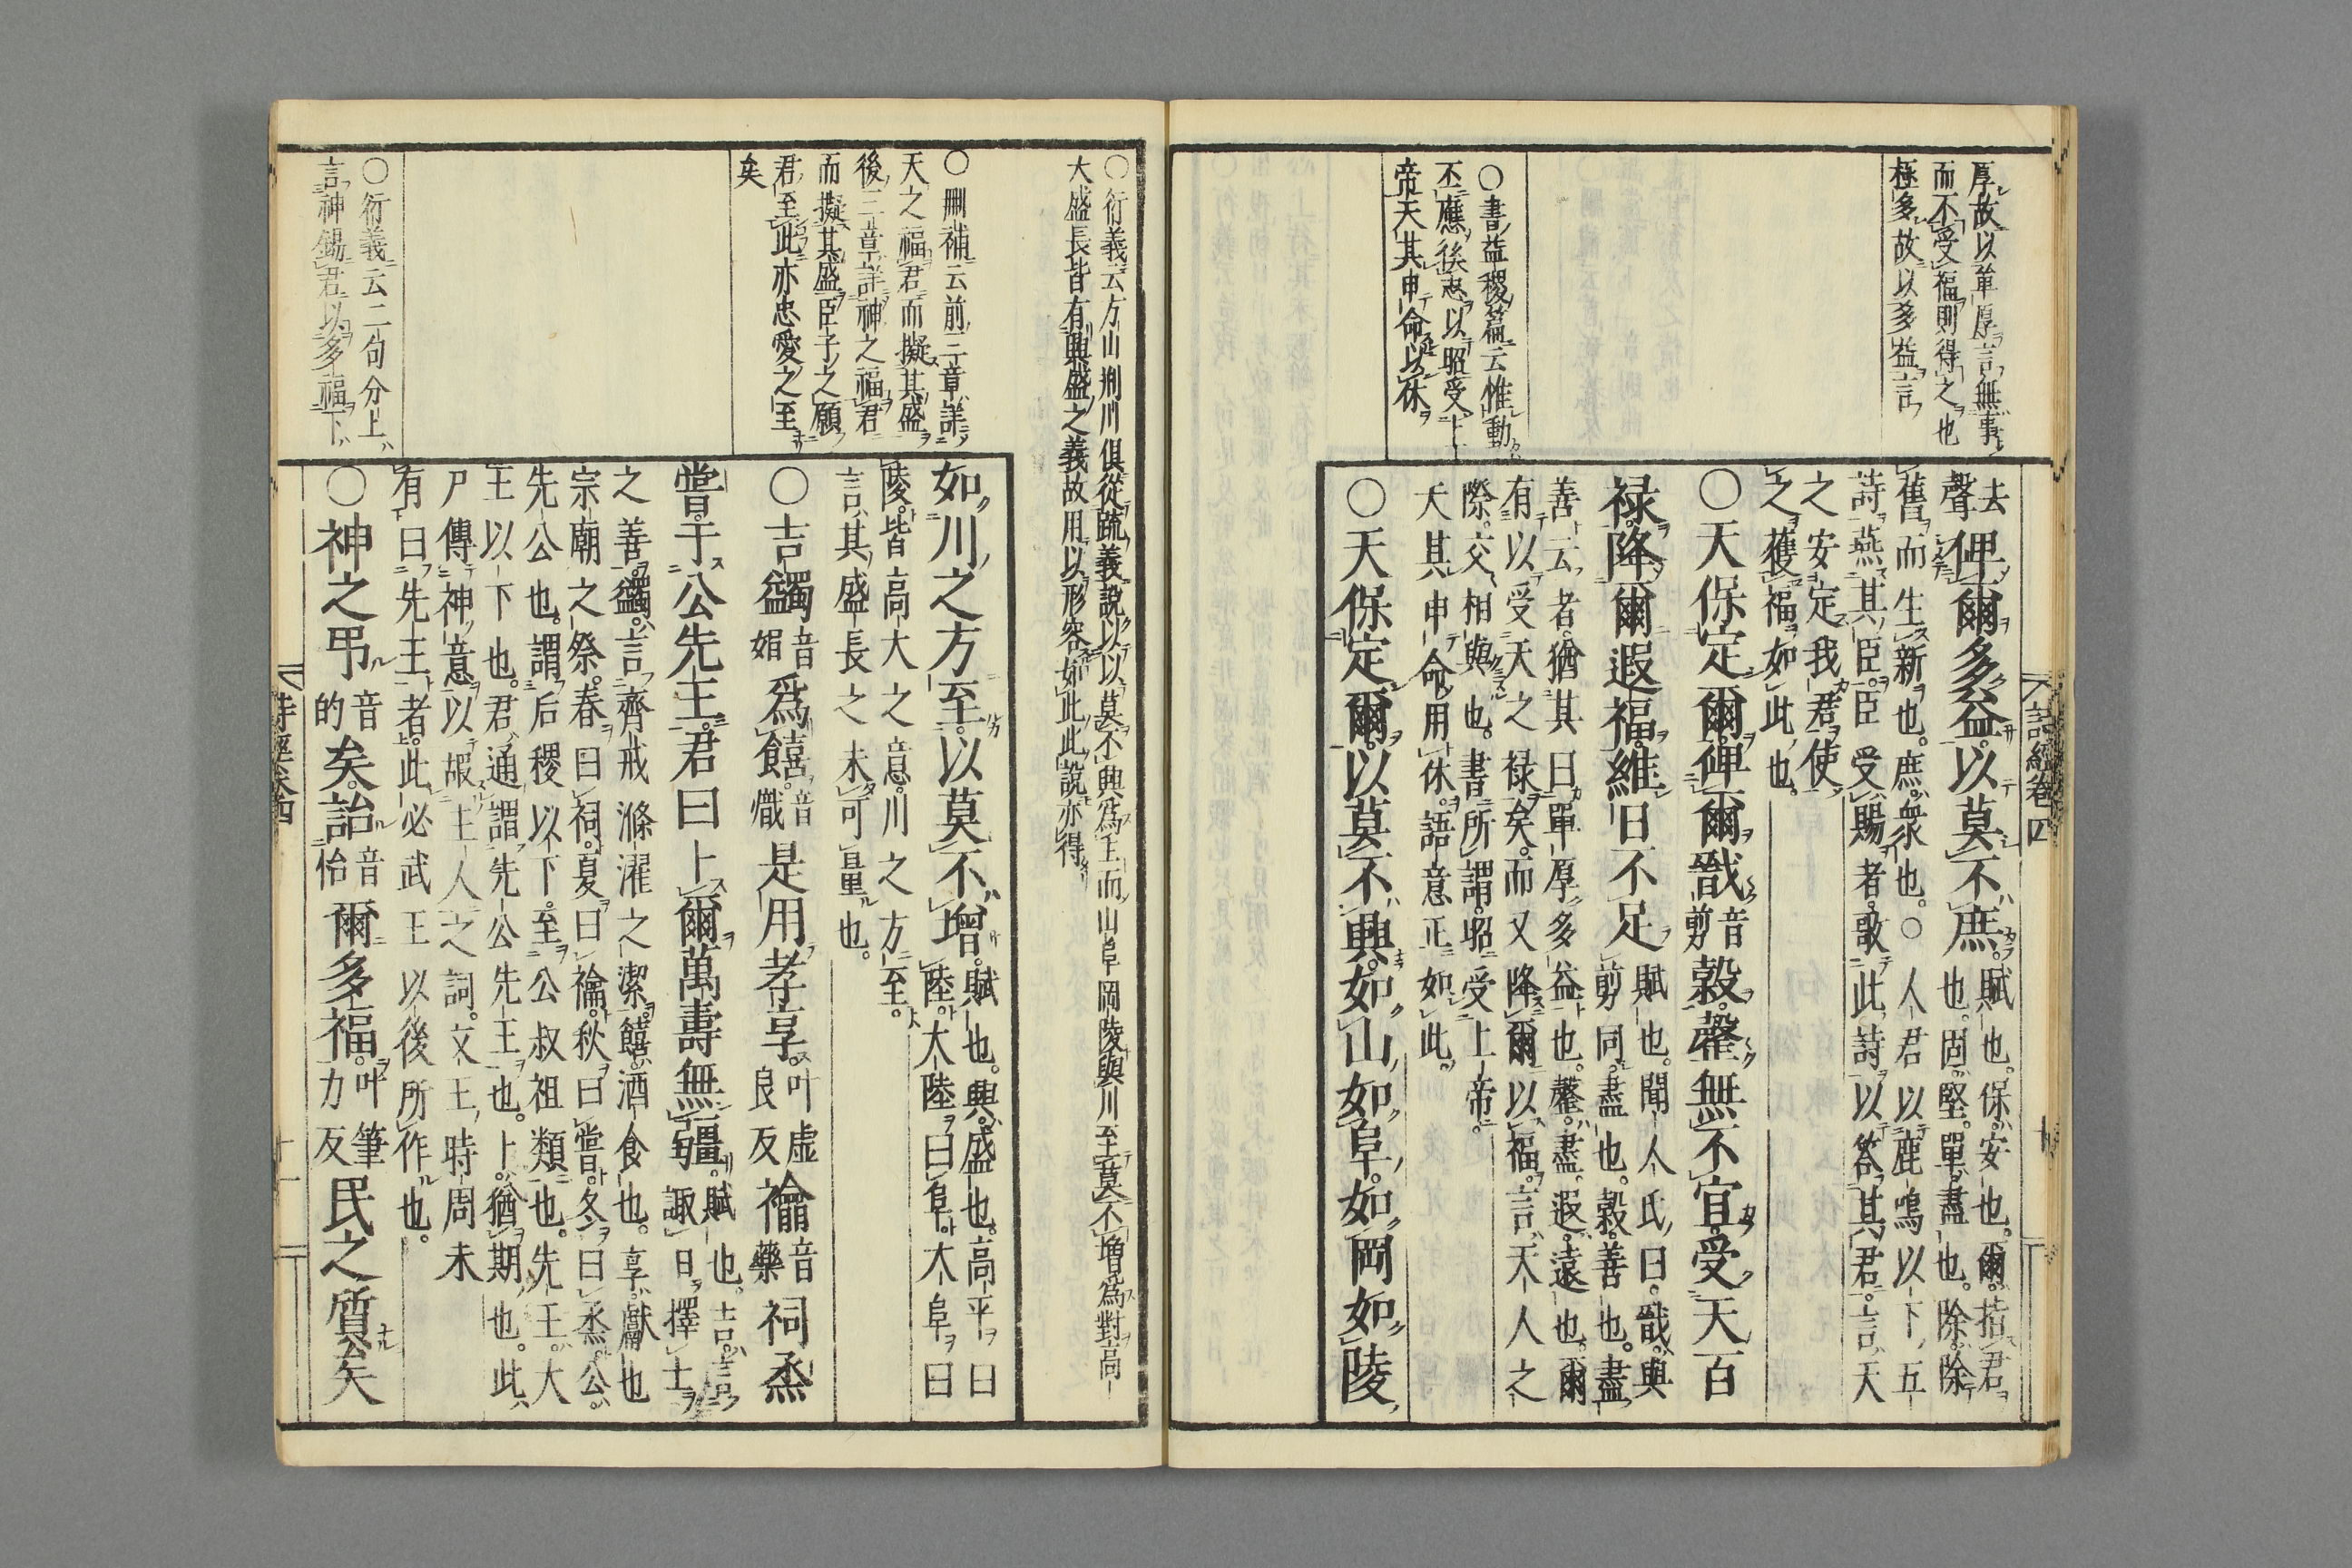 厚故以單厚言無事
而不受福則得之也
極多故以多益言
○書益稷篇云惟動
丕應徯志以昭受上
帝天其申命以休
去
聲俾爾多益以莫不庶賦也保安也爾指君
也固堅單盡也除除
舊而生新也庶衆也○人君以鹿鳴以下五
詩燕其臣臣受賜者歌此詩以答其君言天
之安定我君使
之獲福如此也
○天保定爾俾爾戩音剪穀罄無不宜受天百
祿降爾遐福維日不足賦也聞人氏曰戩與
剪同盡也穀善也盡
善云者猶其曰單厚多益也罄盡遐遠也爾
有以受天之祿矣而又降爾以福言天人之
際交相與也書所謂昭受上帝
天其申命用休語意正如此
○天保定爾以莫不興如山如阜如岡如陵
詩經卷四
十
○衍義云方山剏川俱從疏義說以以莫不興爲主而山阜岡陵與川至莫不增爲對高
大盛長皆有興盛之義故用以形容如此此說亦得
○刪補云前三章詳
天之福君而擬其盛
後三章詳神之福君
而擬其盛臣子之願
君至此亦忠愛之至
矣
○衍義云二句分上
言神錫君以多福下
如川之方至以莫不增賦也興盛也高平曰
陸大陸曰阜大阜曰
陵皆高大之意川之方至
言其盛長之未可量也
○吉蠲音娟爲饎音熾是用孝享叶虛良反禴音藥祠烝
嘗于公先王君曰卜爾萬壽無疆賦也吉言
諏日擇士
之善蠲言齊戒滌濯之潔饎酒食也享獻也
宗廟之祭春曰祠夏曰禴秋曰嘗冬曰烝公
先公也謂后稷以下至公叔祖類也先王大
王以下也君通謂先公先王也卜猶期也此
尸傳神意以嘏主人之詞文王時周未
有曰先王者此必武王以後所作也
○神之弔音的矣詒音怡爾多福叶筆力反民之質矣
詩經卷四
十一